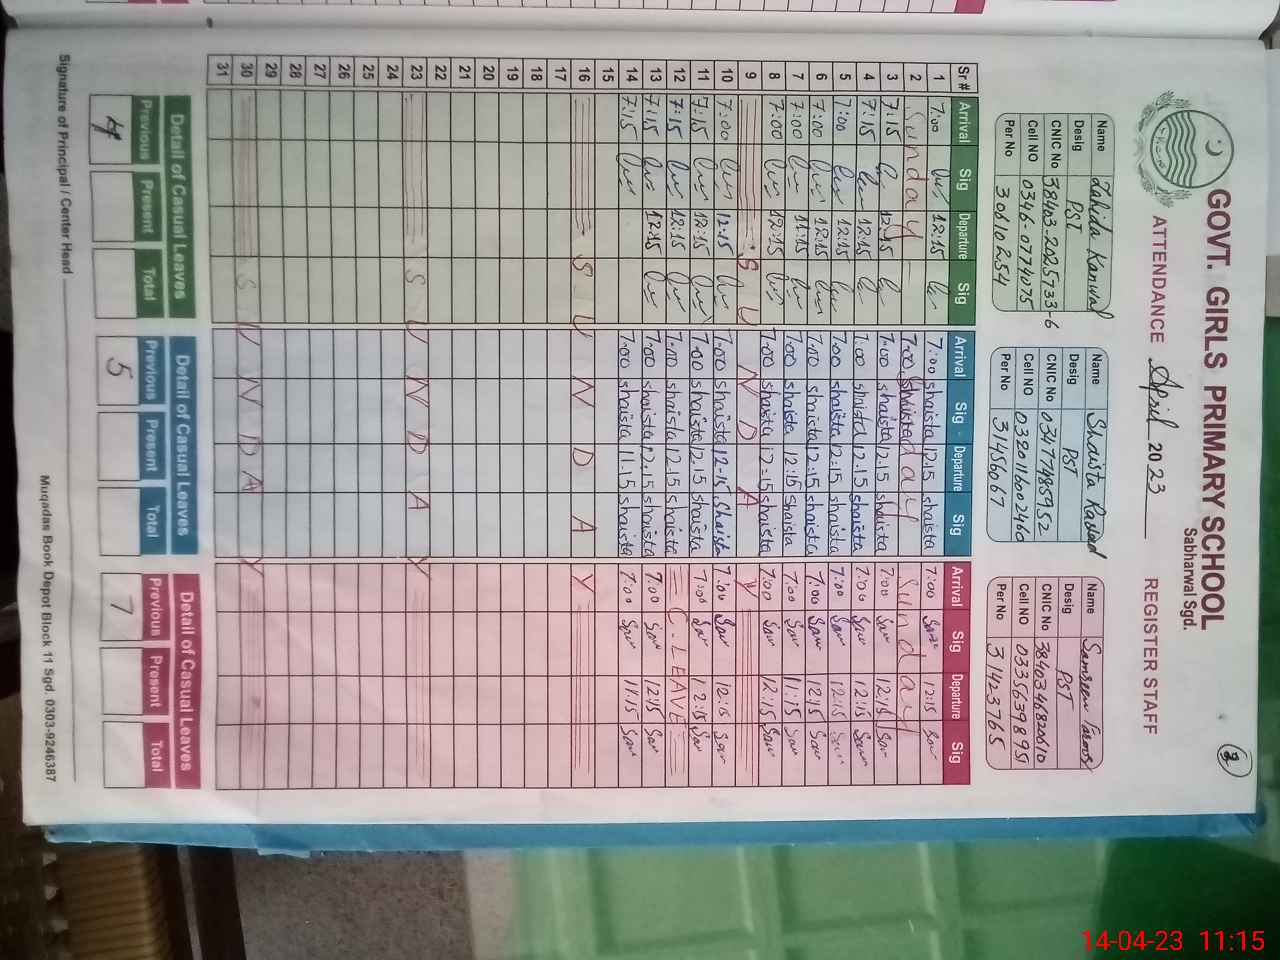 GOVT. GIRLS PRIMARY SCHOOL
Sabharwal Sgd.
2
ATTENDANCE April 2023 REGISTER STAFF
Name Zahida Kanwal
Desig PST
CNIC No 38403-2025733-6
Cell NO 0346-0774075
Per No 30610254
Name Shaista
Desig PST
CNIC No 03477485952
Cell NO 0320116002460
Per No 31456067
Name
Desig PST
CNIC No 3840346820510
Cell NO 03356398951
Per No 31423765
Sr # Arrival Sig Departure Sig Arrival Sig Departure Sig Arrival Sig Departure Sig
1 7:00 12:15 7:00 shaista 12.15 shaista 7:00 12:15
2 Sunday 7:00 Shaista day Sunday
3 7:15 12:15 7:00 shaista 12.15 shaista 7:00 12:15
4 7:15 12:15 7:00 shaista 12.15 shaista 7:00 12:15
5 7:00 12:15 7:00 shaista 12:15 shaista 7:00 12:15
6 7:00 12:15 7:00 shaista 12:15 shaista 7:00 12:15
7 7:00 11:15 7:00 shaista 12:15 shaista 7:00 11:15
8 7:00 12:15 7:00 shaista 12:15 shaista 7:00 12:15
9 S U N D A Y
10 7:00 12:15 7:00 shaista 12.15 shaista 7:00 12:15
11 7:15 12:15 7:00 shaista 12.15 shaista 7:00 12:15
12 7:15 12:15 7:00 shaista 12.15 shaista C. LEAVE
13 7:15 12:15 7:00 shaista 12.15 shaista 7:00 12:15
14 7:15 7:00 shaista 11.15 shaista 7:00 11:15
15
16 S U N D A Y
17
18
19
20
21
22
23 S U N D A Y
24
25
26
27
28
29
30 S U N D A Y
31
Detail of Casual Leaves
Previous Present Total
4
Detail of Casual Leaves
Previous Present Total
5
Detail of Casual Leaves
Previous Present Total
7
Signature of Principal / Center Head
Muqadas Book Depot Block 11 Sgd. 0303-9246387
14-04-23 11:15